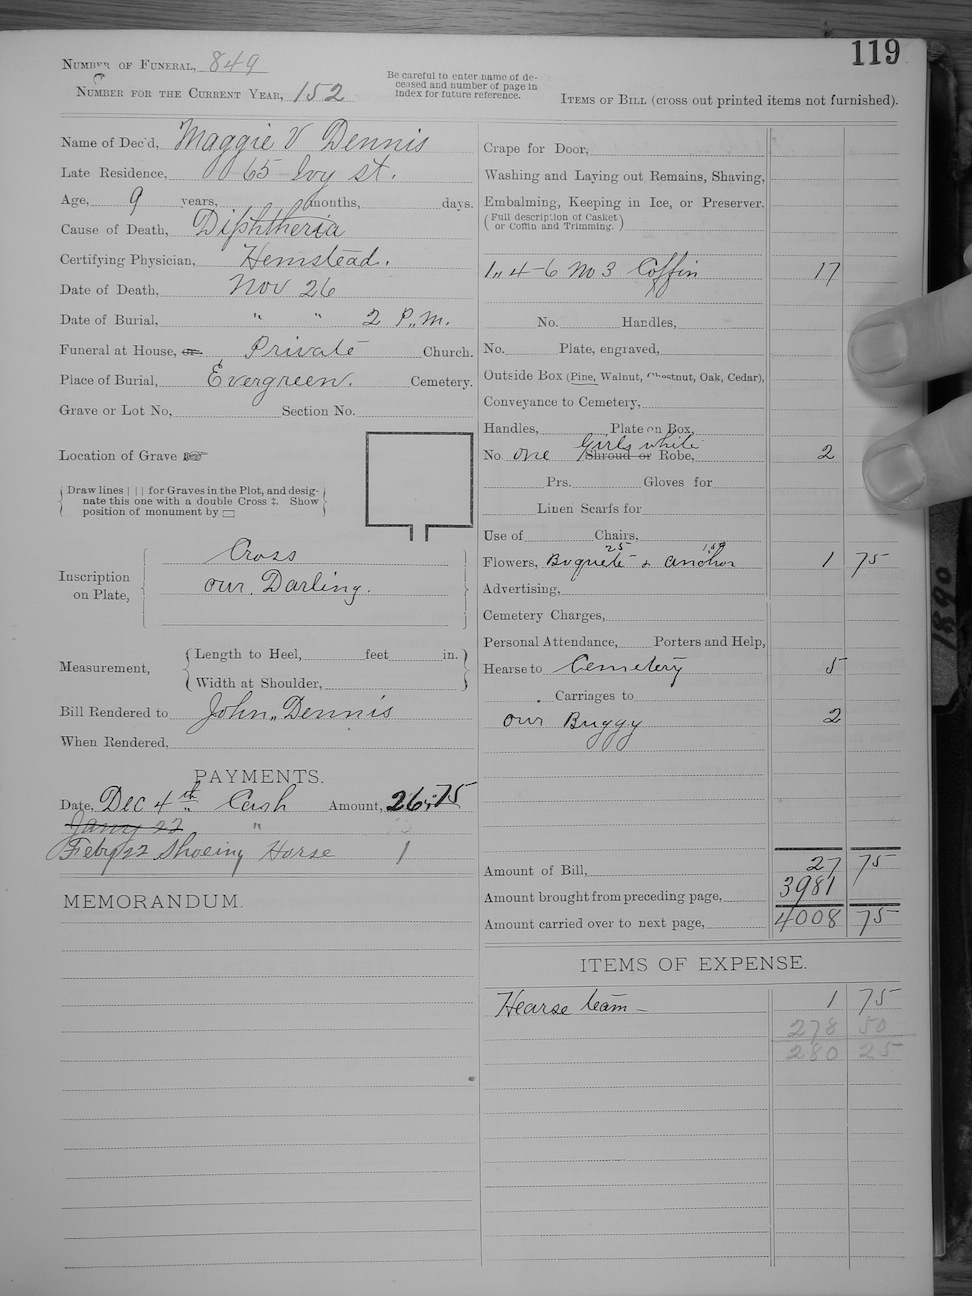 119
Number of Funeral, 849
Number for the Current Year, 152
Be careful to enter name of de-
ceased and number of page in
index for future reference.
Items of Bill (cross out printed items not furnished).
Name of Dec'd, Maggie V Dennis
Late Residence, 65 Ivy st.
Age, 9 years, months, days.
Cause of Death, Diphtheria
Certifying Physician, Hemstead.
Date of Death, Nov 26
Date of Burial, " " 2 P,,M.
Funeral at House, or Private Church.
Place of Burial, Evergreen. Cemetery.
Grave or Lot No, Section No.
Location of Grave
Draw lines | | | for Graves in the Plot, and desig-
nate this one with a double Cross ‡. Show
position of monument by ▭
Inscription on Plate,
Cross
our Darling.
Measurement,
Length to Heel, feet in.
Width at Shoulder,
Bill Rendered to John,, Dennis
When Rendered,
PAYMENTS.
Date, Dec 4th Cash Amount, 26,75
Jany 22 "
Feby 22 Shoeing Horse 1
MEMORANDUM.
Crape for Door,
Washing and Laying out Remains, Shaving,
Embalming, Keeping in Ice, or Preserver.
(Full description of Casket
or Coffin and Trimming.)
1,, 4-6 No 3 Coffin 17
No. Handles,
No. Plate, engraved,
Outside Box (Pine, Walnut, Chestnut, Oak, Cedar),
Conveyance to Cemetery,
Handles, Plate on Box,
Girls white
No one Shroud or Robe, 2
Prs. Gloves for
Linen Scarfs for
Use of Chairs,
25 1.50
Flowers, Buquete & anchor 1 75
Advertising,
Cemetery Charges,
Personal Attendance, Porters and Help,
Hearse to Cemetery 5
Carriages to
our Buggy 2
Amount of Bill, 27 75
Amount brought from preceding page, 3981
Amount carried over to next page, 4008 75
ITEMS OF EXPENSE.
Hearse team 1 75
278 50
280 25
1890